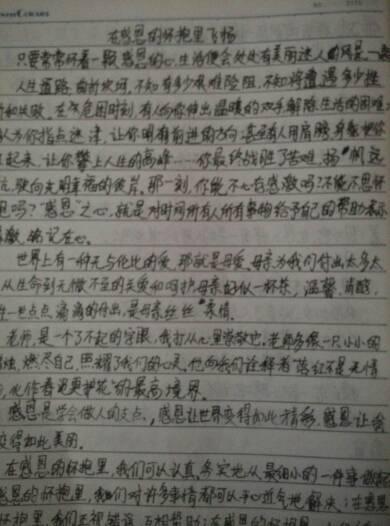 在感恩的怀抱里飞扬
只要常常怀着一颗感恩的心,生活便会处处有美丽迷人的风景。
人生道路,曲折坎坷,不知有多少艰难险阻,不知将遭遇多少挫
和失败。在危困时刻,有人向你伸出温暖的双手解除生活的困难
人为你指点迷津,让你明确前进的方向;甚至有人用肩膀身躯把你
起来,让你攀上人生的高峰……你最终战胜了苦难,扬帆远
航,驶向光明幸福的彼岸。那一刻,你能不心存感激吗?不能不思怀
恩吗?“感恩”之心,就是对时间所有人所有事物给予自己的帮助表示
感激,铭记在心。
世界上有一种无与伦比的爱,那就是母爱。母亲为我们付出太多太
从生命到无微不至的关爱和呵护母亲好似一杯茶,温馨,清醇,
一点点,滴滴的付出,是母亲丝丝柔情。
老师,是一个了不起的字眼,我打从心里崇敬它。老师多像一只小小的
烛,燃尽自己,照耀了我们的心灵。他向我们诠释着“落红不是无情
,化作春泥更护花”的最高境界。
感恩是学会做人的支点,感恩让世界变得如此精彩,感恩让
变得如此美丽。
在感恩的怀抱里,我们可以认真,务实地从最细小的一件事做起
感恩的怀抱里,我们对许多事情都可以平心近气地解决;在感恩
怀抱里,我们正视错误,互相帮助;在感恩的怀抱里